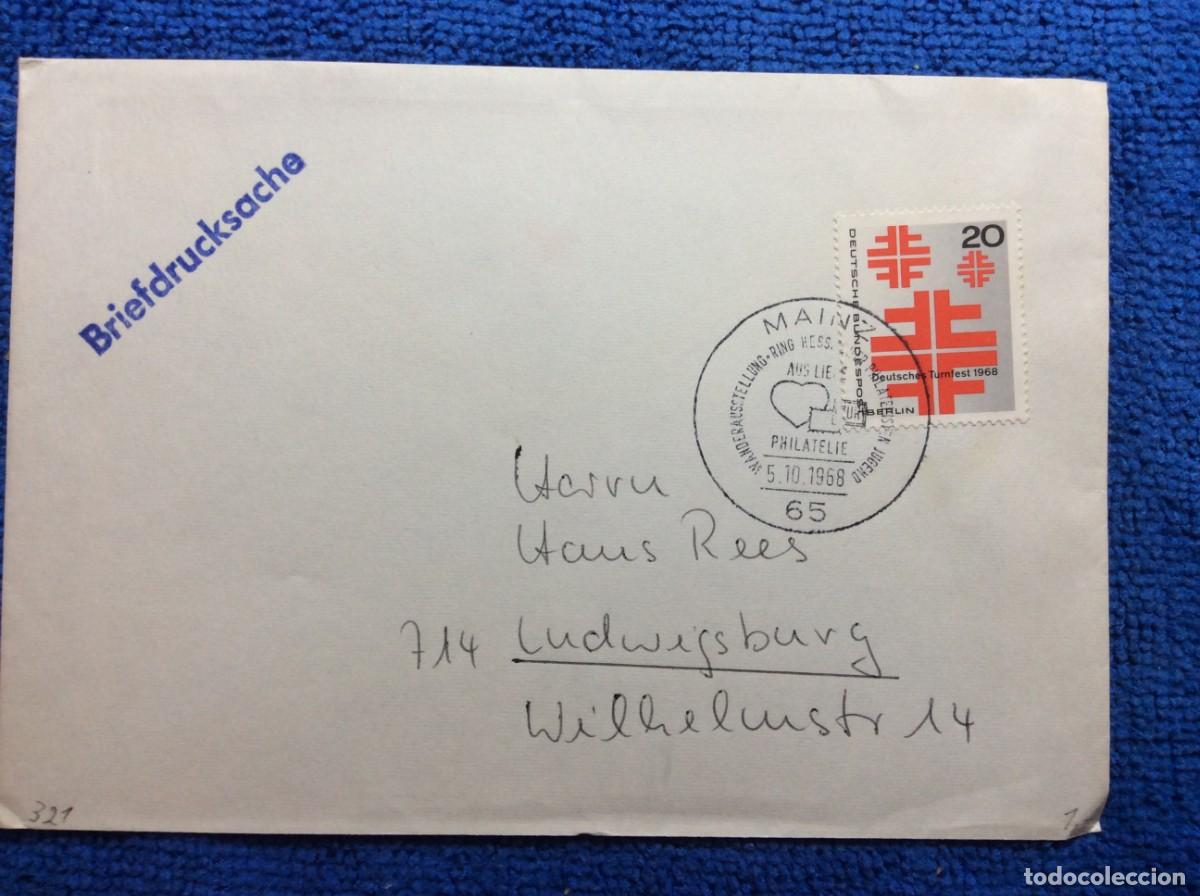 Briefdrucksache
20
DEUTSCHE BUNDESPOST
BERLIN
Deutsches Turnfest 1968
MAINZ
WANDERAUSSTELLUNG • RING HESS.
PHILATELISTEN JUGEND
AUS LIE
ZUR
PHILATELIE
5.10.1968
65
Herrn
Hans Rees
714 Ludwigsburg
Wilhelmstr 14
321
1
todocoleccion